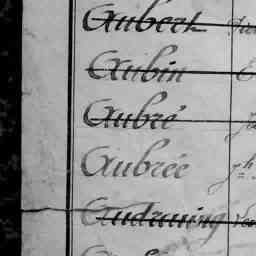 Aubert
Aubin
Aubré
Aubrée
Audruning